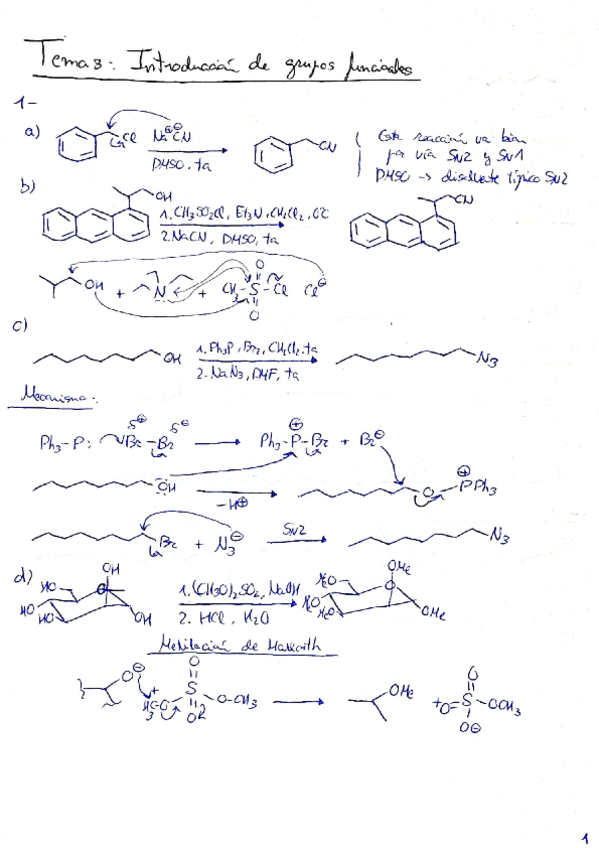 Tema 3: Introducción de grupos funcionales
1-
a) Cl NaCN CN
DMSO, ta
Esta reacción va bien
por vía SN2 y SN1
DMSO → disolvente típico SN2
b) OH CN
1. CH3SO2Cl, Et3N, CH2Cl2, 0°C
2. NaCN, DMSO, ta
OH + N + CH3 S Cl Cl⊖
O
O
c)
OH 1. Ph3P, Br2, CH2Cl2, ta N3
2. NaN3, DMF, ta
Mecanismo:
δ⊕ δ⊖
Ph3-P: Br-Br → Ph3-P⊕-Br + Br⊖
OH -H⊕ O PPh3 ⊕
Br + N3⊖ SN2 N3
d) OH OMe
HO O MeO O
HO HO OH MeO MeO OMe
1. (CH3O)2SO2, NaOH
2. HCl, H2O
Metilación de Haworth
O⊖ + H3C-O S O-CH3 → OMe + O=S-OCH3
O O O O⊖
1